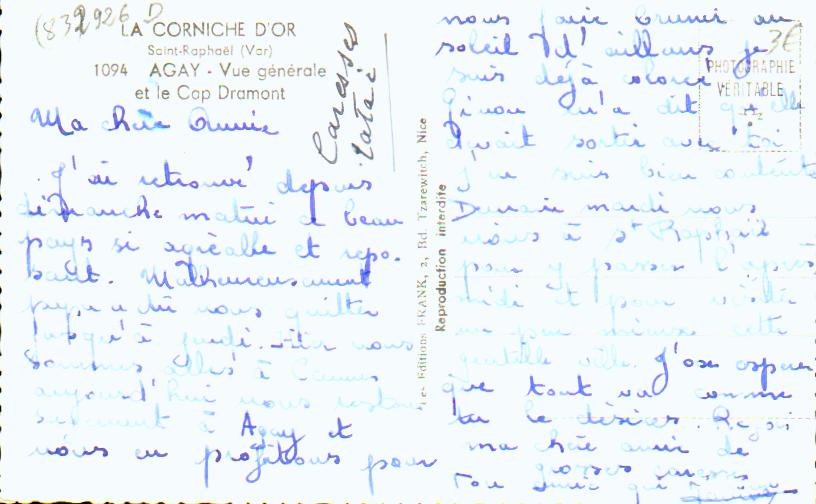 (832926 D
LA CORNICHE D'OR
Saint-Raphaël (Var)
1094 AGAY - Vue générale
et le Cap Dramont
Ma chère Annie
J'ai retrouvé depuis
dimanche matin ce beau
pays si agréable et repo-
sant. Malheureusement
papa a dû nous quitter
jusqu'à jeudi. Hier nous
sommes allés à Cannes
aujourd'hui nous restons
à Agay et
nous en profitons pour
Caresses
Les Editions FRANK, 2, Bd. Tzarewitch, Nice
Reproduction interdite
nous faire brunir au
soleil d'ailleurs je
suis déjà colorée
Ginou m'a dit qu'elle
devait sortir avec toi
j'en suis bien contente
Demain mardi nous
irons à St Raphaël
pour y passer l'après
midi et pour visiter
un peu mieux cette
gentille ville. J'ose espérer
que tout va comme
tu le désires. Reçois
ma chère amie de
grosses caresses
Ton amie qui
3€
PHOTOGRAPHIE
VÉRITABLE